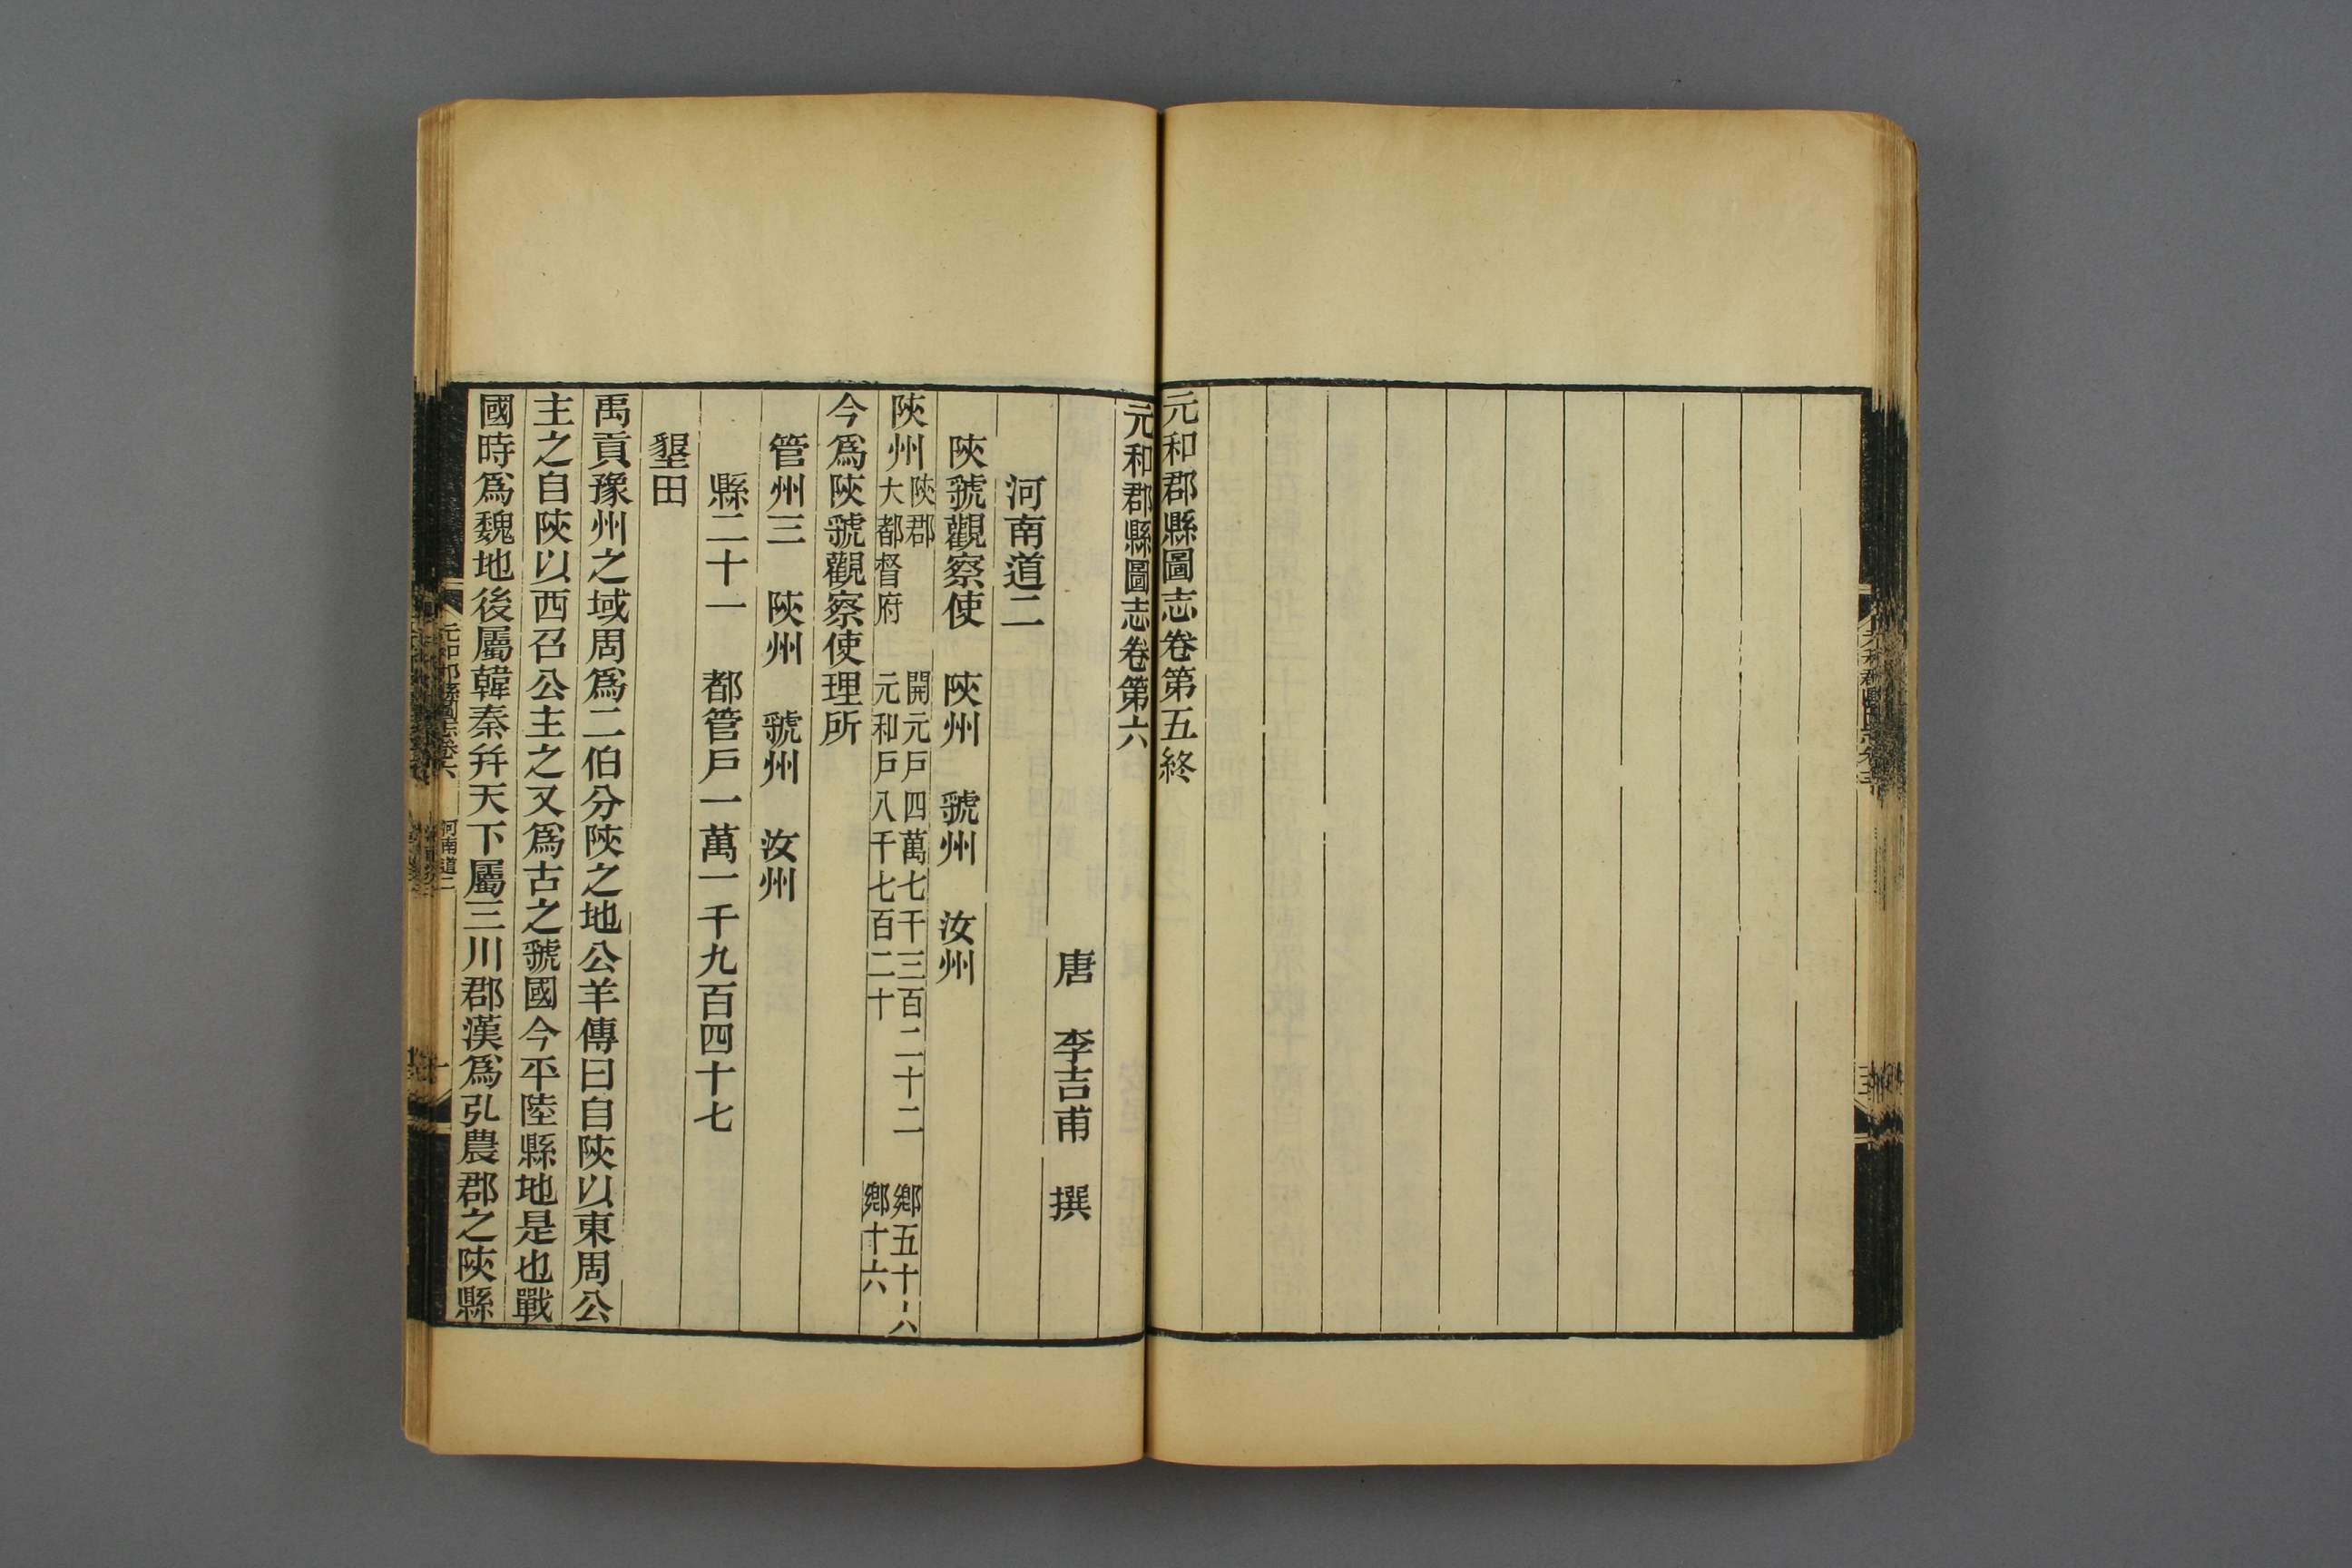 元和郡縣圖志卷第五終
元和郡縣圖志卷第六
唐　李吉甫　撰
河南道二
陝虢觀察使　陝州　虢州　汝州
陝州
陝郡
大都督府
開元戶四萬七千三百二十二　鄉五十八
元和戶八千七百二十　鄉十六
今爲陝虢觀察使理所
管州三　陝州　虢州　汝州
縣二十一　都管戶一萬一千九百四十七
墾田
禹貢豫州之域周爲二伯分陝之地公羊傳曰自陝以東周公
主之自陝以西召公主之又爲古之虢國今平陸縣地是也戰
國時爲魏地後屬韓秦幷天下屬三川郡漢爲弘農郡之陝縣
元和郡縣圖志卷六　河南道二　一